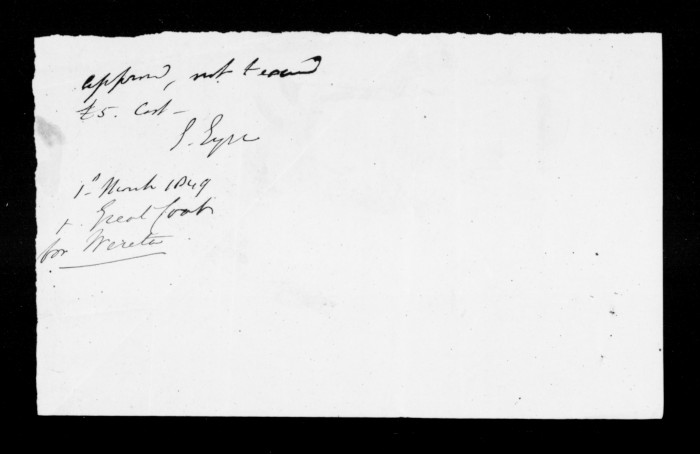 approved, not to exceed
£5. Cost –
E. Eyre
1st March 1849
+ Great Coat
for Wirete